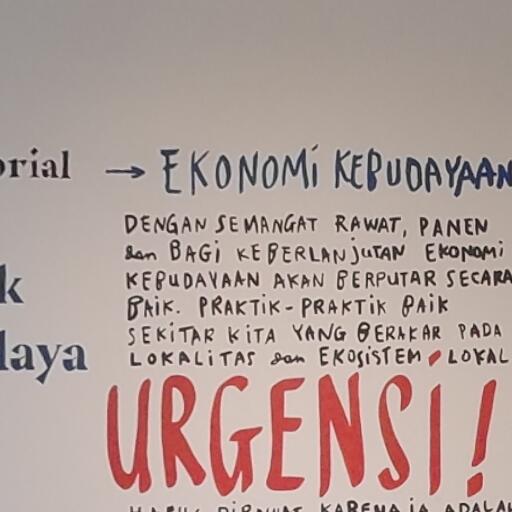 orial
→ EKONOMI KEBUDAYAAN
DENGAN SEMANGAT RAWAT, PANEN
dan BAGI KEBERLANJUTAN EKONOMI
KEBUDAYAAN AKAN BERPUTAR SECARA
BAIK. PRAKTIK-PRAKTIK BAIK
SEKITAR KITA YANG BERAKAR PADA
LOKALITAS dan EKOSISTEM LOKAL
k
daya
URGENSI!
KARENA IA ADALAH